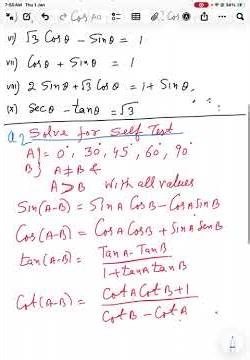 7:50 AM Thu 1 Jan
vi) √3 Cosθ - Sinθ = 1
vii) Cosθ + Sinθ = 1
viii) 2 Sinθ + √3 Cosθ = 1 + Sinθ.
(x) Secθ - tanθ = √3
Q2 Solve for Self Test
A} = 0°, 30°, 45°, 60°, 90°
B} A ≠ B &
A > B With all values
Sin(A-B) = SinA CosB - CosA SinB
Cos(A-B) = CosA CosB + SinA SinB
tan(A-B) = TanA - TanB / 1 + tanA tanB
Cot(A-B) = CotA CotB + 1 / CotB - CotA